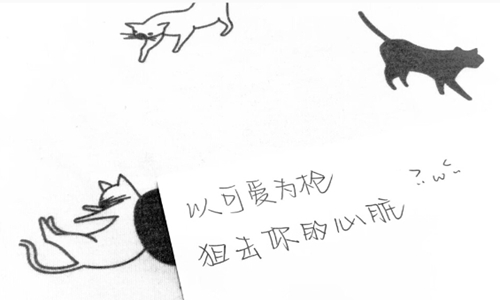 以可爱为枪
狙击你的心脏